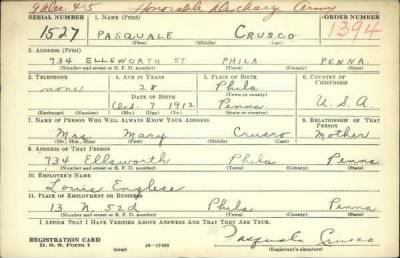 9 Dec 45 Honorable Discharge Army
SERIAL NUMBER 1. NAME (Print) ORDER NUMBER
1527 PASQUALE CRUSCO 1394
(First) (Middle) (Last)
2. ADDRESS (Print)
734 ELLSWORTH ST PHILA PENNA.
(Number and street or R. F. D. number) (Town) (County) (State)
3. TELEPHONE 4. AGE IN YEARS 5. PLACE OF BIRTH 6. COUNTRY OF CITIZENSHIP
none 28 Phila
DATE OF BIRTH (Town or county)
Oct. 7 1912 Penna U.S.A
(Exchange) (Number) (Mo.) (Day) (Yr.) (State or country)
7. NAME OF PERSON WHO WILL ALWAYS KNOW YOUR ADDRESS 8. RELATIONSHIP OF THAT PERSON
Mrs. Mary Crusco Mother
(Mr., Mrs., Miss) (First) (Middle) (Last)
9. ADDRESS OF THAT PERSON
734 Ellsworth Phila. Penna.
(Number and street or R. F. D. number) (Town) (County) (State)
10. EMPLOYER'S NAME
Louis Englese
11. PLACE OF EMPLOYMENT OR BUSINESS
13 N. 52d Phila Penna.
(Number and street or R. F. D. number) (Town) (County) (State)
I AFFIRM THAT I HAVE VERIFIED ABOVE ANSWERS AND THAT THEY ARE TRUE.
REGISTRATION CARD
D. S. S. Form 1 (over) 16—17105
Pasquale Crusco
(Registrant's signature)